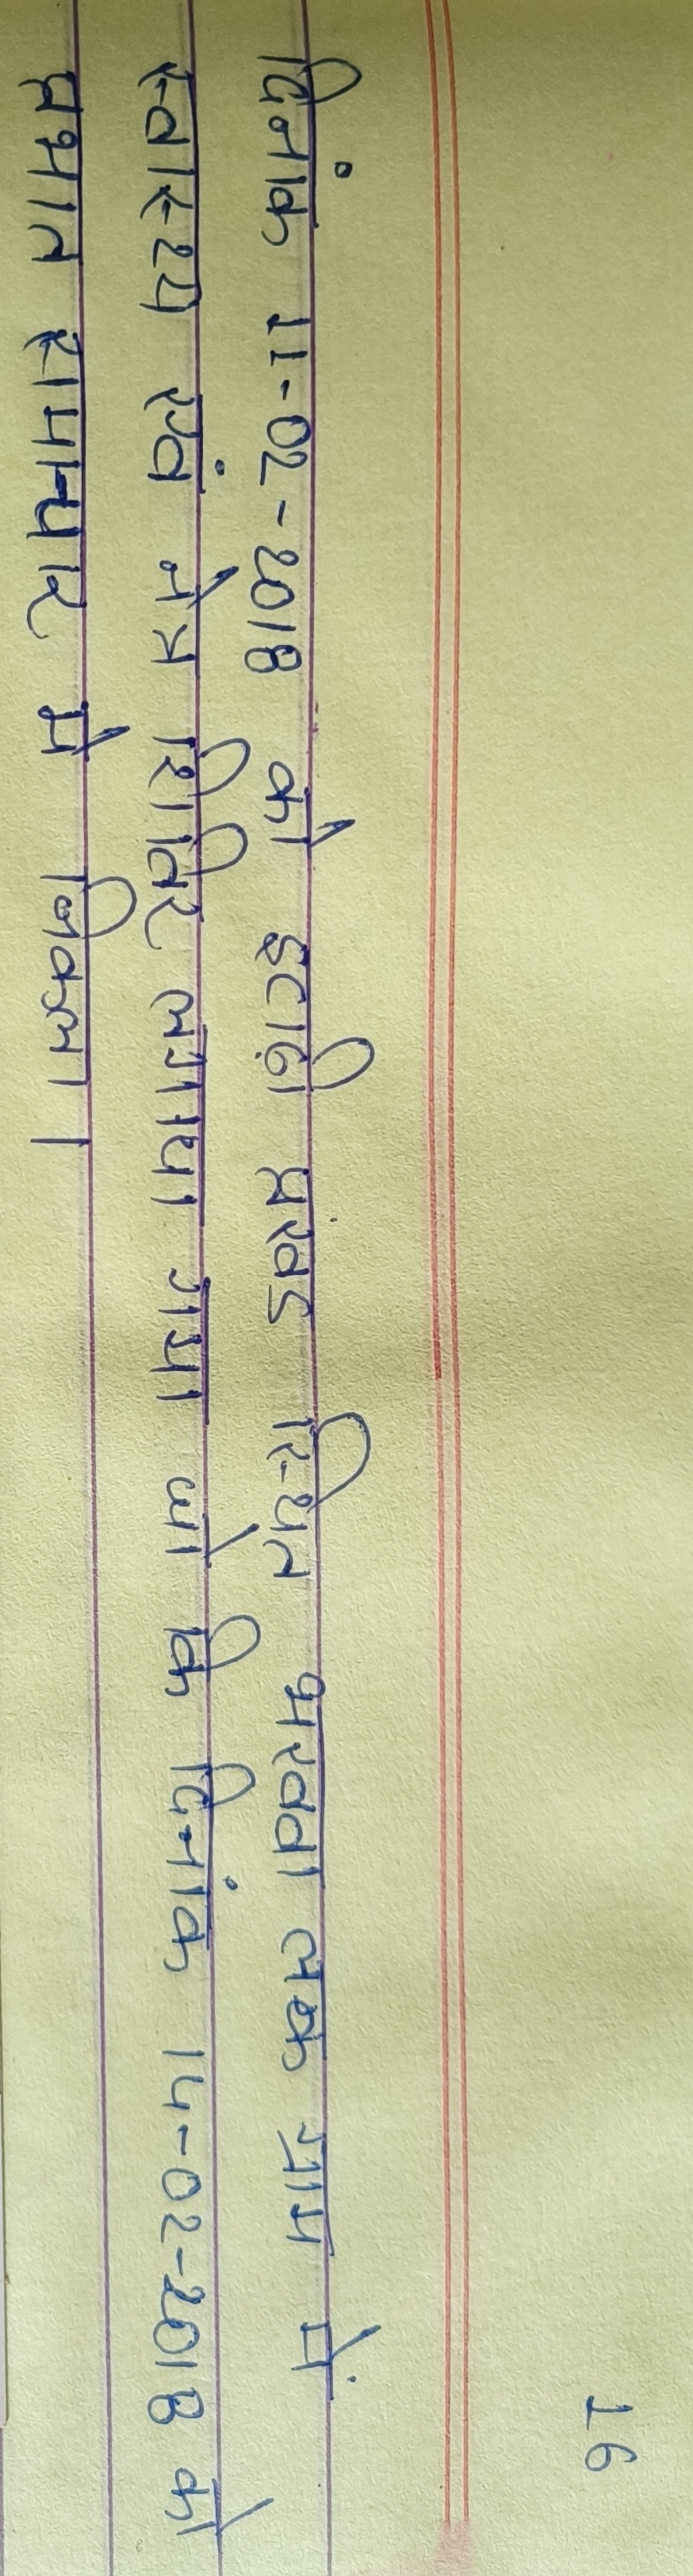 16
दिनांक 11-02-2018 को इटाढ़ी प्रखंड स्थित भरखवा लख ग्राम में
स्वास्थ्य एवं नेत्र शिविर लगाया गया जो कि दिनांक 14-02-2018 को
प्रभात समाचार मे निकला।